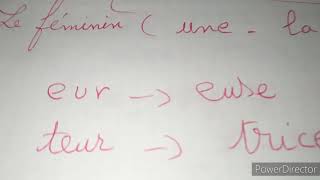 Le féminin ( une - la
eur -> euse
teur -> trice
PowerDirector